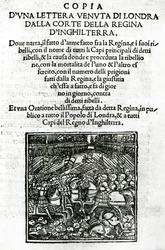 COPIA
D'VNA LETTERA VENVTA DI LONDRA
DALLA CORTE DELLA REGINA
D'INGHILTERRA.
Doue narra, il fatto d'arme fatto fra la Regina, e i suoi ri-
belli, con il nome di tutti li Capi principali di detti
ribelli, & la causa donde è proceduta la ribellio
ne, con la mortalità de l'uno & l'altro es
sercito, con il numero delli prigioni
fatti dalla Regina, e la giustitia
ch'essa à fatto, e fa di gior
no in giorno, contra
di detti ribelli.
Et vna Oratione bellissima, fatta da detta Regina, in pu-
blico a tutto il Popolo di Londra, & a tutti
Capi del Regno d'Inghilterra.